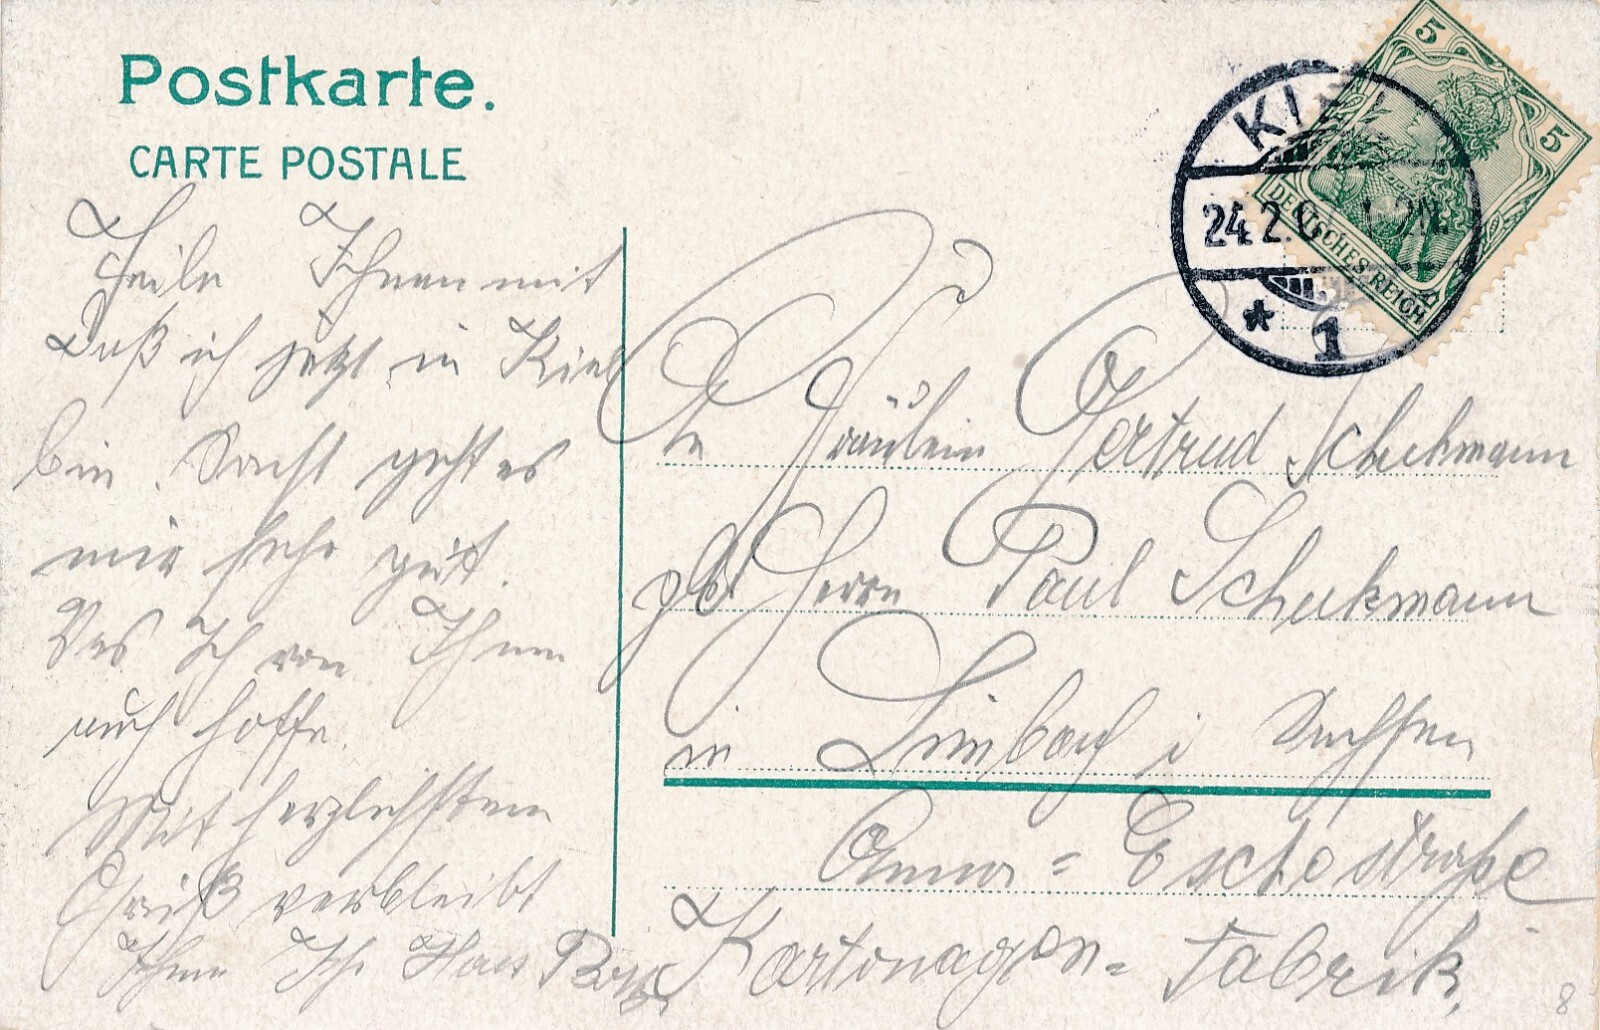 Postkarte.
CARTE POSTALE
5
5
DEUTSCHES REICH
KIEL
24.2.
* 1
Theile Ihnen mit
Daß ich jetzt in Kiel
bin. Sonst geht es
mir sehr gut.
Das Ich von Ihnen
auch hoffe.
Mit herzlichsten
Gruß verbleibt
Ihnen Ihr Hans
Fräulein Gertrud Scheckmann
Herrn Paul Scheckmann
in Limbach i Sachsen
Anna = Esche straße
Kartonagen = Fabrik.
8